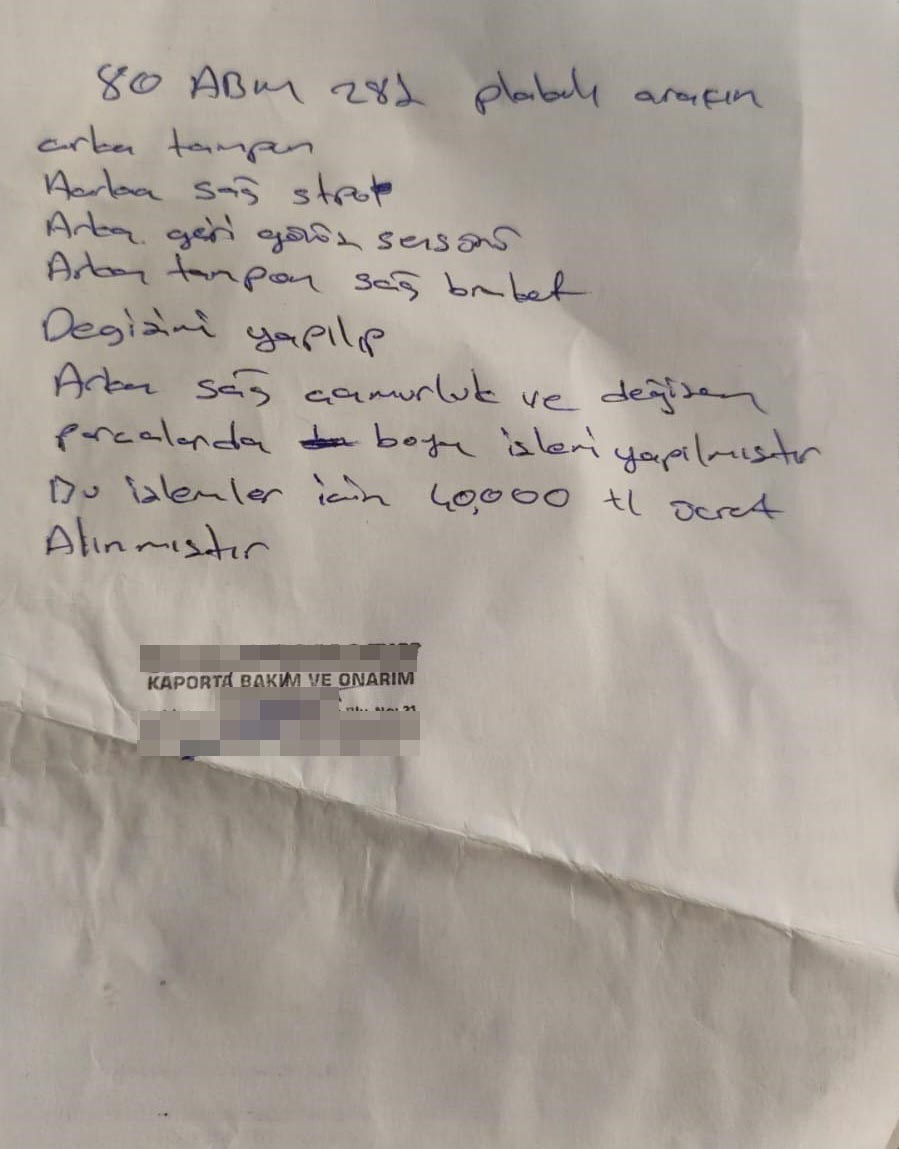 80 ABM 282 plakalı aracın
arka tampon
Aarka sağ strop
Arka geri görüş sensörü
Arka tampon sağ braket
Degişimi yapılıp
Arka sağ çamurluk ve değişen
parcalarda boya işleri yapılmıştır
Bu işlemler için 40,000 tl ücret
Alınmıştır
KAPORTA BAKIM VE ONARIM